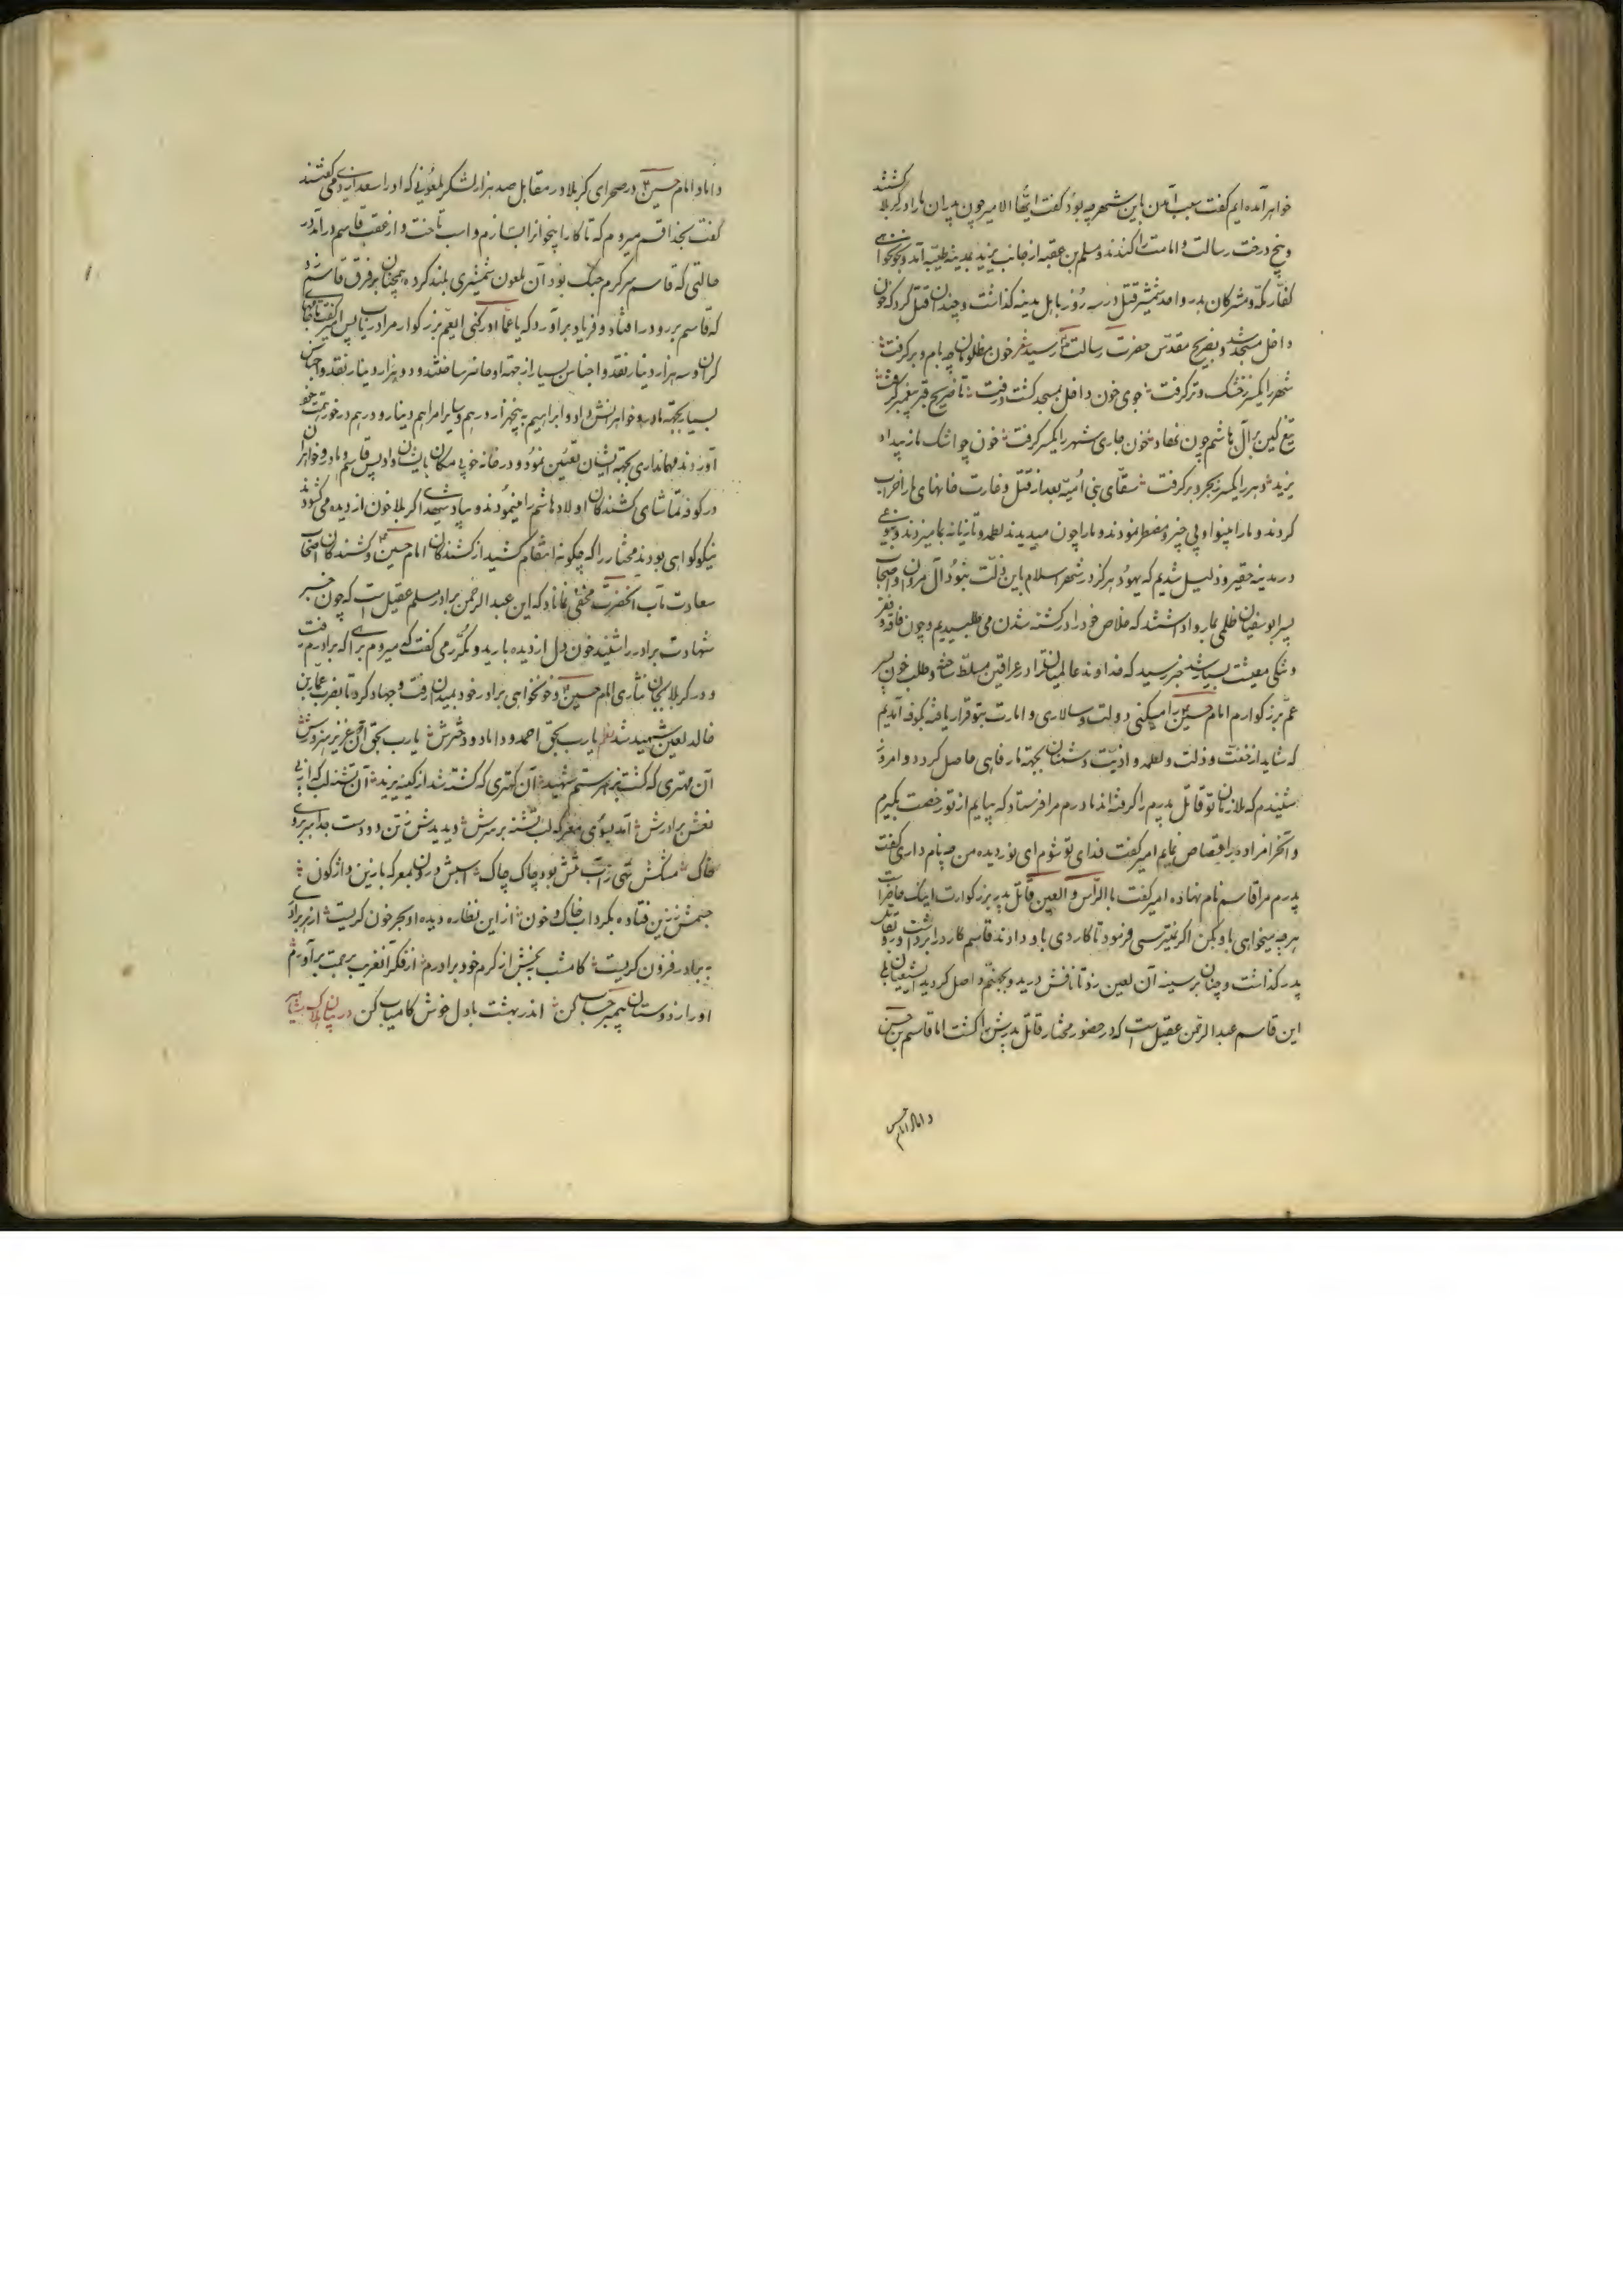 خواهر آمده ایم گفت سبب آمدن باین شهر چه بود گفت ایها الامیر چون پدران ما را در کربلا کشتند
و بیخ درخت رسالت و امامت را کندند و مسلم بن عقبه از جانب یزید بمدینه طیبه آمد و بخونخواهی
کفار مکه و مشرکان بدر و احد شمشیر قتل در سه روز باهل مدینه گذاشت و چندان قتل کرد که خون
داخل مسجد شد و بضریح مقدس حضرت رسالت رسید شعر خون مظلومان چه بام و در گرفت
شهر را یکسر ز خشک و تر گرفت جوی خون داخل بمسجد گشت و رفت تا ضریح قبر پیغمبر گرفت
تیغ کین بر آل هاشم چون نهاد خون جاری شهر را یکسر گرفت خون چو اشک ما ز بیداد
یزید دهر را یکسر ز بحر و بر گرفت اشقیای بنی امیه بعد از قتل و غارت خانهای ما را خراب
کردند و ما را بینوا و بی چیز و مضطر نمودند و ما را چون میدیدند لطمه و تازیانه بما میزدند و بنوعی
در مدینه حقیر و ذلیل شدیم که یهود هرگز در شهر اسلام باین ذلت نبود آل مروان و اصحاب
پسر ابوسفیان ظلمی بما روا داشتند که خلاص خود را در کشته شدن می طلبیدیم و چون فاقه و فقر
و تنگی معیشت بسیار شد خبر رسید که خداوند عالمیان ترا در عراقین مسلط ساخته و طلب خون پسر
عم بزرگوارم امام حسین را میکنی و دولت و سالاری و امارت بتو قرار یافته بکوفه آمدیم
که شاید از خفت و ذلت و لطمه و اذیت دشمنان بجهة ما رفاهی حاصل گردد و امروز
شنیدم که ملازمان تو قاتل پدرم را گرفته اند مادرم مرا فرستاد که بیایم از تو رخصت بگیرم
و آنحرامزاده را قصاص نمایم امیر گفت فدای تو شوم ای نور دیده من چه نام داری گفت
پدرم مرا قاسم نام نهاده امیر گفت بالراس و العین قاتل پدر بزرگوارت اینک حاضر است
هر چه میخواهی باو بکن اگر نمیترسی فرمود تا کاردی باو دادند قاسم کارد را برداشت و رو بقاتل
پدر گذاشت و چنان بر سینه آن لعین زد تا نافش درید و بجهنم واصل گردید ای شیعیان
این قاسم عبدالرحمن عقیل است که در حضور مختار قاتل پدرش را کشت اما قاسم بن حسن
داماد امام حسین
داماد امام حسین در صحرای کربلا در مقابل صد هزار لشکر ملعونی که او را سعد ازدی می گفتند
گفت بخدا قسم میروم که تا کار اینجوانرا بسازم و اسب تاخت و از عقب قاسم در آمد در
حالتی که قاسم سرگرم جنگ بود آن ملعون شمشیری بلند کرده همچنان بر فرق قاسم زد
که قاسم برو در افتاد و فریاد بر آورد که یا عماه ادرکنی ای عم بزرگوار مرا دریاب پس امیر گفت تا خلعتهای
گران و سه هزار دینار نقد و اجناس بسیار از جهة او حاضر ساختند و دو هزار دینار نقد و اجناس
بسیار بجهة مادر و خواهرانش داد و ابراهیم پنجهزار درهم و سایر امرا هم دینار و درهم در خور همت خود
آوردند و مهمانداری بجهة ایشان تعیین نمود و در خانه خوبی مکان بایشان داد پس قاسم و مادر و خواهران
در کوفه تماشای کشندگان اولاد هاشم را مینمودند و بیاد شهدا کربلا خون از دیده می گشودند
نیکو گواهی بودند مختار را که چگونه انتقام کشید از کشندگان امام حسین و کشندگان اصحاب
سعادت مآب آنحضرت مخفی نماناد که این عبدالرحمن برادر مسلم عقیل است که چون خبر
شهادت برادر را شنید خون دل از دیده بارید و مکرر می گفت که میروم براهی که برادرم رفت
و در کربلا بجان نثاری امام حسین و خونخواهی برادر خود بمیدان رفت و جهاد کرد تا بضرب عثمان بن
خالد لعین شهید شد یا رب بحق احمد و داماد و دخترش یا رب بحق آن دو عزیز سرورش
آن مهتری که گشت بزهر ستم شهید آن کهتری که کشته شد از کینه یزید آن تشنه لب که از پی
نعش برادرش آمد بسوی معرکه لب تشنه بر سرش دیدش ز تن دو دست جدا بر روی
خاک مشکش تهی ز آب تنش بود چاک چاک اسبش درون معرکه با زین واژگون
جسمش ز زین فتاده بگرداب خاک و خون از این نظاره دیده او بحر خون گریست از بهر برادری
برادر فزون گریست کامشب ببخش از کرم خود برادرم از فکر آنغریب برحمت برآورم
او را ز دوستان پیمبر حساب کن اندر بهشت با دل خوش کامیاب کن در بیان هلاک